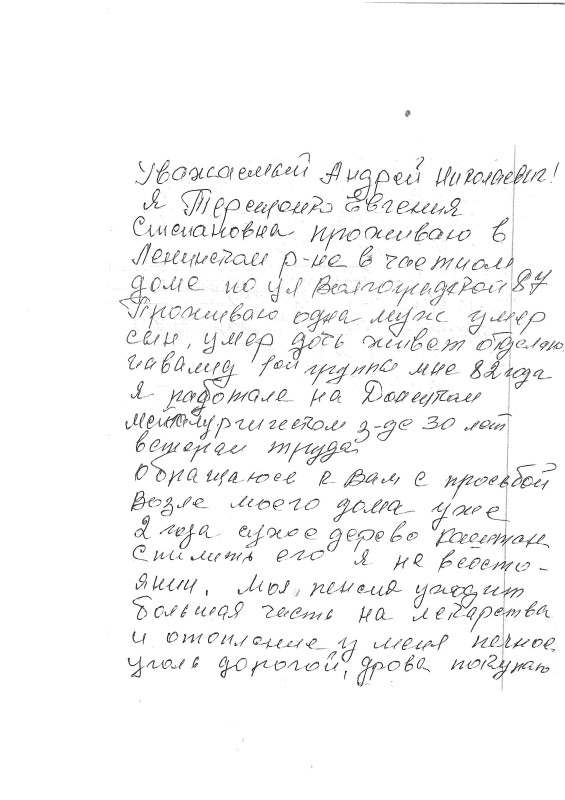 Уважаемый Андрей Николаевич!
Я Терещенко Евгения
Степановна проживаю в
Ленинском р-не в частном
доме по ул Волгоградской 87
Проживаю одна муж умер
сын, умер дочь живет отдельно
инвалид 1ой группы мне 82 года
Я работала на Донецком
металлургическом з-де 30 лет
ветеран труда
обращаюсь к Вам с просьбой
Возле моего дома уже
2 года сухое дерево каштан
Спилить его я не всосто-
янии. Моя пенсия уходит
большая часть на лекарства
и отопление у меня печное
уголь дорогой, дрова покупаю